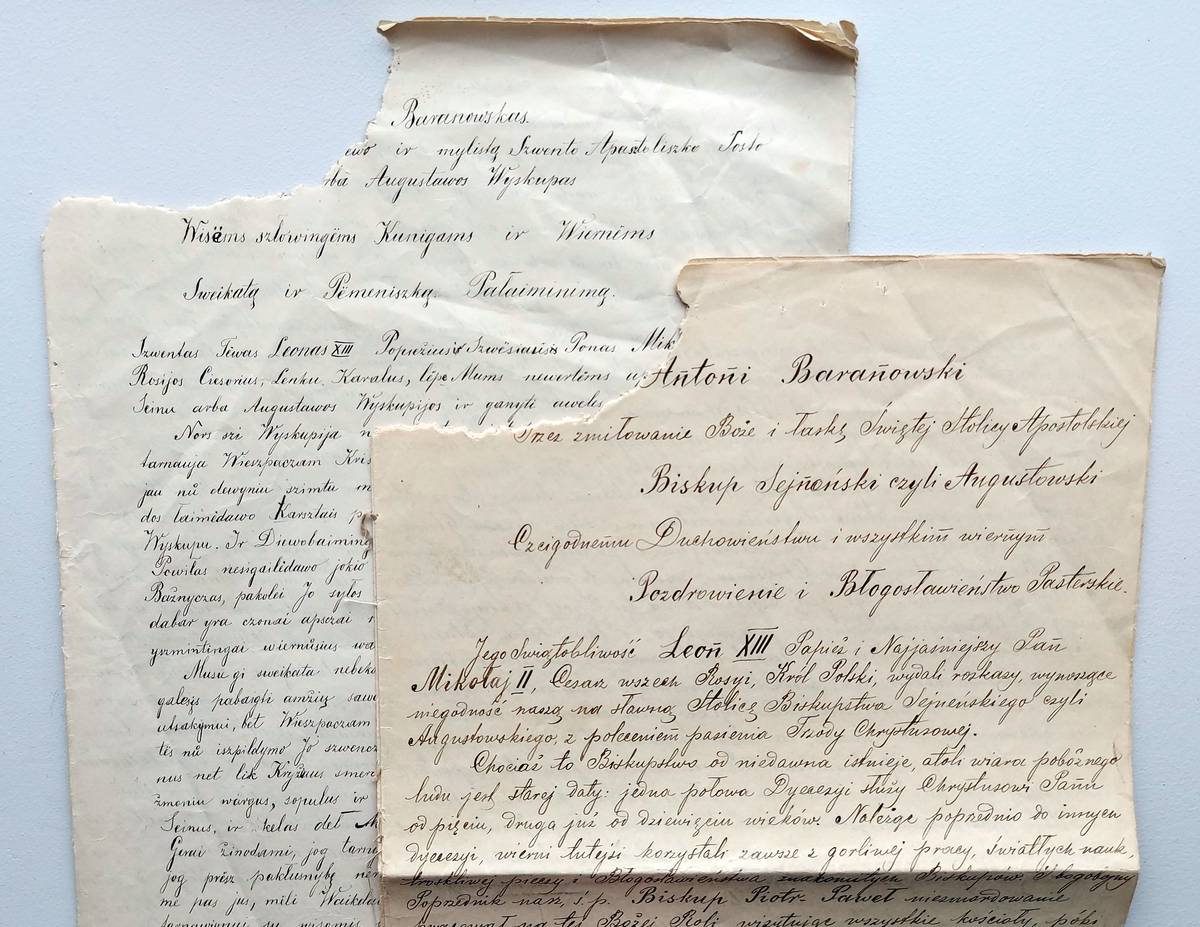 Baranowskas.
ewo ir mylistą Szwento Apasztoliszko Sosto
rba Augustawos Wyskupas
Wisëms szlowingëms Kunigams ir Wiernëms
Sweikatą ir Pëmeniszką Pałaiminimą.
Szwentas Tëwas Leonas XIII Popiežius ir Szwësiausis Ponas Mik
Rosijos Ciesorius, Lenku Karalus, lïpe Mums newertëms u
Seinu arba Augustawos Wyskupijos ir ganyti aweles
Nors szi Wyskupija n
tarnauja Wieszpaczam Kris
jau nů dewyniu szimtu m
dos łaimëdawo Karsztais p
Wyskupu. Ir Diewobaiming
Powiłas nesigailëdawo jokio
Bažnyczas, pakolei Jo syłos
dabar yra czonai apszai
yszmintingai wiernůsius wa
Musů gi sweikata nebeka
galęsis pabaigti amžių sawo
utsakymui, bet Wieszpaczam
tës nů iszpildymo Jo szwencz
nus net lik Kryžiaus smer
žmoniu wargus, sopulus ir
Seinus, ir kelas dël M
Gerai žinodami, jog tarny
jog prësz paklusnybę nem
me pas jus, mili Waikelai
Antoni Baranowski
Przez zmiłowanie Boże i łaskę Świętej Stolicy Apostolskiej
Biskup Sejneński czyli Augustowski
Czcigodnemu Duchowieństwu i wszystkim wiernym
Pozdrowienie i Błogosławieństwo Pasterskie.
Jego Świątobliwość Leon XIII Papież i Najjaśniejszy Pan
Mikołaj II, Cesarz wszech Rosyi, Król Polski, wydali rozkazy, wynoszące
niegodność naszą na sławną Stolicę Biskupstwa Sejneńskiego czyli
Augustowskiego, z poleceniem pasienia Trzody Chrystusowej.
Chociaż to Biskupstwo od niedawna istnieje, atoli wiara pobożnego
ludu jest starej daty: jedna połowa Dyecezyi służy Chrystusowi Panu
od pięciu, druga już od dziewięciu wieków. Należąc poprzednio do innych
dyecezyi, wierni tutejsi korzystali zawsze z gorliwej pracy, światłych nauk,
troskliwej pieczy i Błogosławieństwa znakomitych Biskupów. I bogobojny
Poprzednik nasz, ś.p. Biskup Piotr-Paweł niezmordowanie
pracował na tej Bożej Roli, wizytując wszystkie kościoły, póki